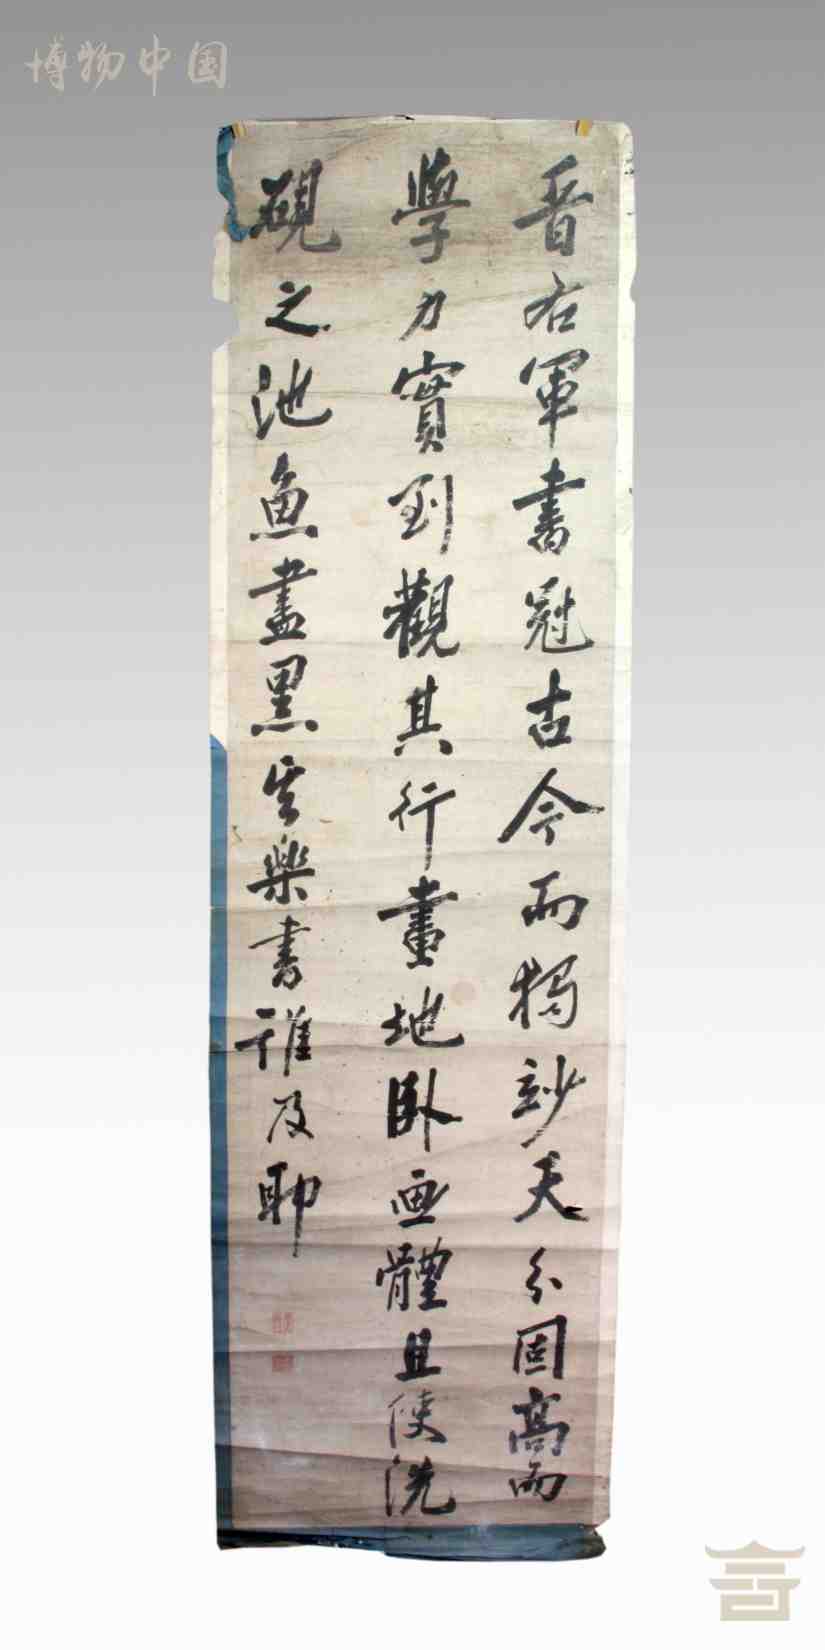 博物中国
晋右軍書冠古今而獨妙天分固高而
學力實到觀其行畫地臥画體且使洗
硯之池魚盡黑其樂書誰及耶